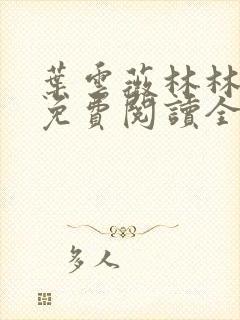 葉雲薇林林
免費閱讀全
多人